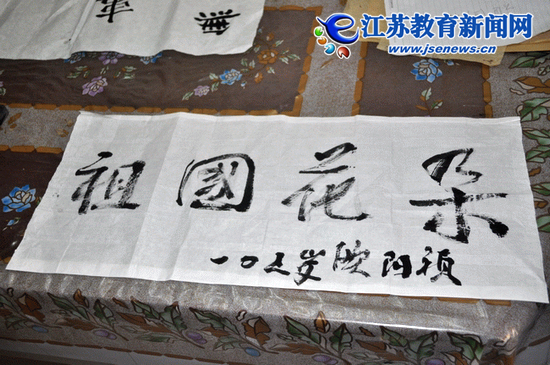 無
江苏教育新闻网
www.jsenews.cn
祖國花朵
一〇二岁欧阳